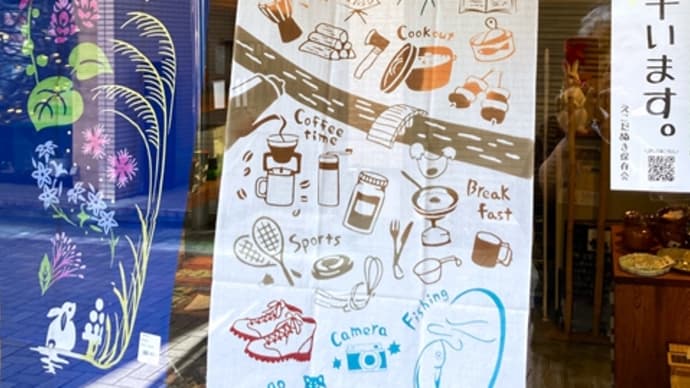 Cookout
Coffee
time
Break
fast
Sports
Camera
Fishing
います。